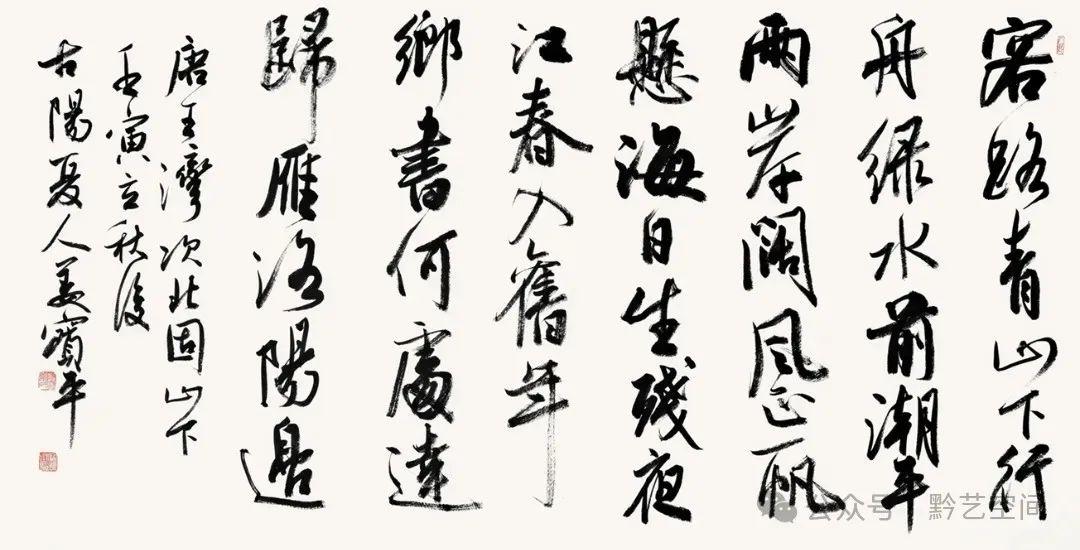 客路青山下行
舟綠水前潮平
兩岸闊風正一帆
懸海日生殘夜
江春入舊年
鄉書何處達
歸雁洛陽邊
唐王灣次北固山下
壬寅立秋後
古陽夏人姜寳平
公众号·黔艺空间